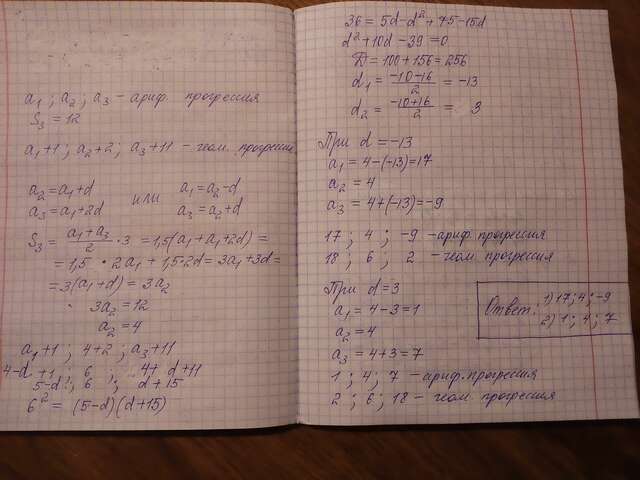 a₁ ; a₂ ; a₃ – ариф. прогрессия
S₃ = 12
a₁+1 ; a₂+2 ; a₃+11 – геом. прогрессия
a₂ = a₁+d или a₁ = a₂-d
a₃ = a₁+2d a₃ = a₂+d
S₃ = (a₁+a₃)/2 · 3 = 1,5(a₁+a₁+2d) =
= 1,5 · 2a₁ + 1,5·2d = 3a₁+3d =
= 3(a₁+d) = 3a₂
3a₂ = 12
a₂ = 4
a₁+1 ; 4+2 ; a₃+11
4-d+1 ; 6 ; 4+d+11
5-d ; 6 ; d+15
6² = (5-d)(d+15)
36 = 5d-d²+75-15d
d²+10d-39=0
D = 100+156=256
d₁ = (-10-16)/2 = -13
d₂ = (-10+16)/2 = 3
При d = -13
a₁ = 4-(-13)=17
a₂ = 4
a₃ = 4+(-13)=-9
17 ; 4 ; -9 – ариф. прогрессия
18 ; 6 ; 2 – геом. прогрессия
При d = 3
a₁ = 4-3=1
a₂ = 4
a₃ = 4+3=7
1 ; 4 ; 7 – ариф. прогрессия
2 ; 6 ; 18 – геом. прогрессия
Ответ: 1) 17; 4; -9
2) 1; 4; 7